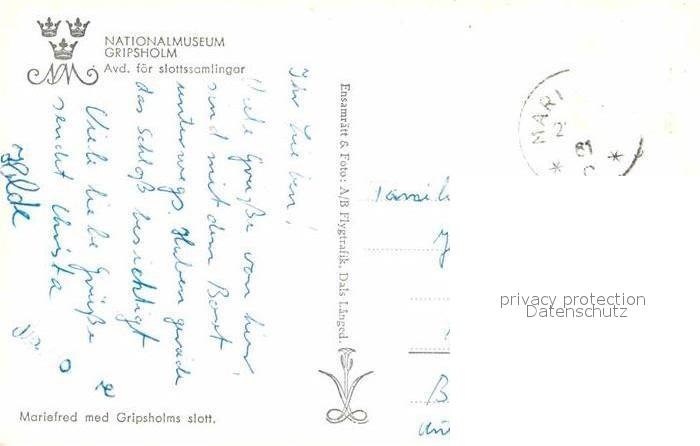 NATIONALMUSEUM
GRIPSHOLM
Avd. för slottssamlingar
Ihr Lieben!
Viele Grüße von hier,
sind mit dem Boot
unterwegs. Haben gerade
das Schloß besichtigt
Viele liebe Grüße
sendet Christa
Hilde
Ensamrätt & Foto: A/B Flygtrafik, Dals Långed.
MARI
2
81
Famili
B
privacy protection
Datenschutz
Mariefred med Gripsholms slott.